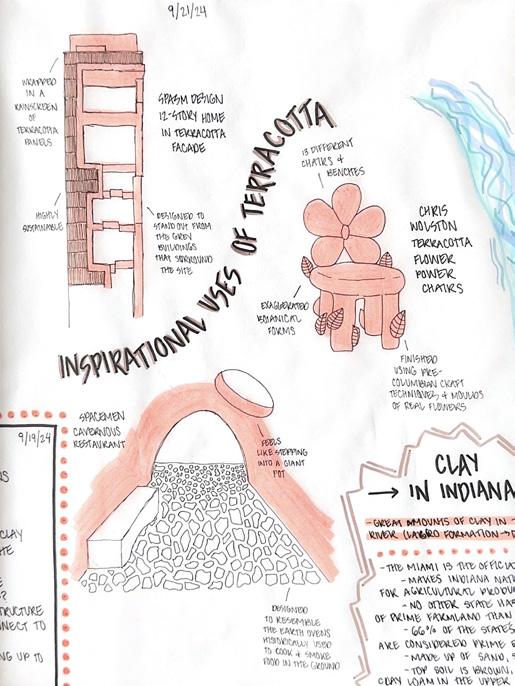 9/21/24
WRAPPED
IN A
RAINSCREEN
OF
TERRACOTTA
PANELS
SPASM DESIGN
12-STORY HOME
IN TERRACOTTA
FACADE
HIGHLY
SUSTAINABLE
DESIGNED TO
STAND OUT FROM
THE GREY
BUILDINGS
THAT SURROUND
THE SITE
INSPIRATIONAL USES OF TERRACOTTA
13 DIFFERENT
CHAIRS &
BENCHES
CHRIS
WOLSTON
TERRACOTTA
FLOWER
POWER
CHAIRS
EXAGGERATED
BOTANICAL
FORMS
FINISHED
USING PRE-
COLUMBIAN CRAFT
TECHNIQUES & MOULDS
OF REAL FLOWERS
SPACEMEN
CAVERNOUS
RESTAURANT
FEELS
LIKE STEPPING
INTO A GIANT
POT
DESIGNED
TO RESEMBLE
THE EARTH OVENS
HISTORICALLY USED
TO COOK & SMOKE
FOOD IN THE GROUND
9/19/24
CLAY
STRUCTURE
CONNECT TO
UP TO
CLAY
→ IN INDIANA
- GREAT AMOUNTS OF CLAY IN
RIVER FORMATION →
- THE MIAMI IS THE
- MAKES INDIANA
FOR AGRICULTURAL
- NO OTHER STATE HAS
OF PRIME FARMLAND THAN
- 66% OF THE STATES
ARE CONSIDERED PRIME
- MADE UP OF SAND,
- TOP SOIL IS BROWN,
CLAY LOAM IN THE UPPER